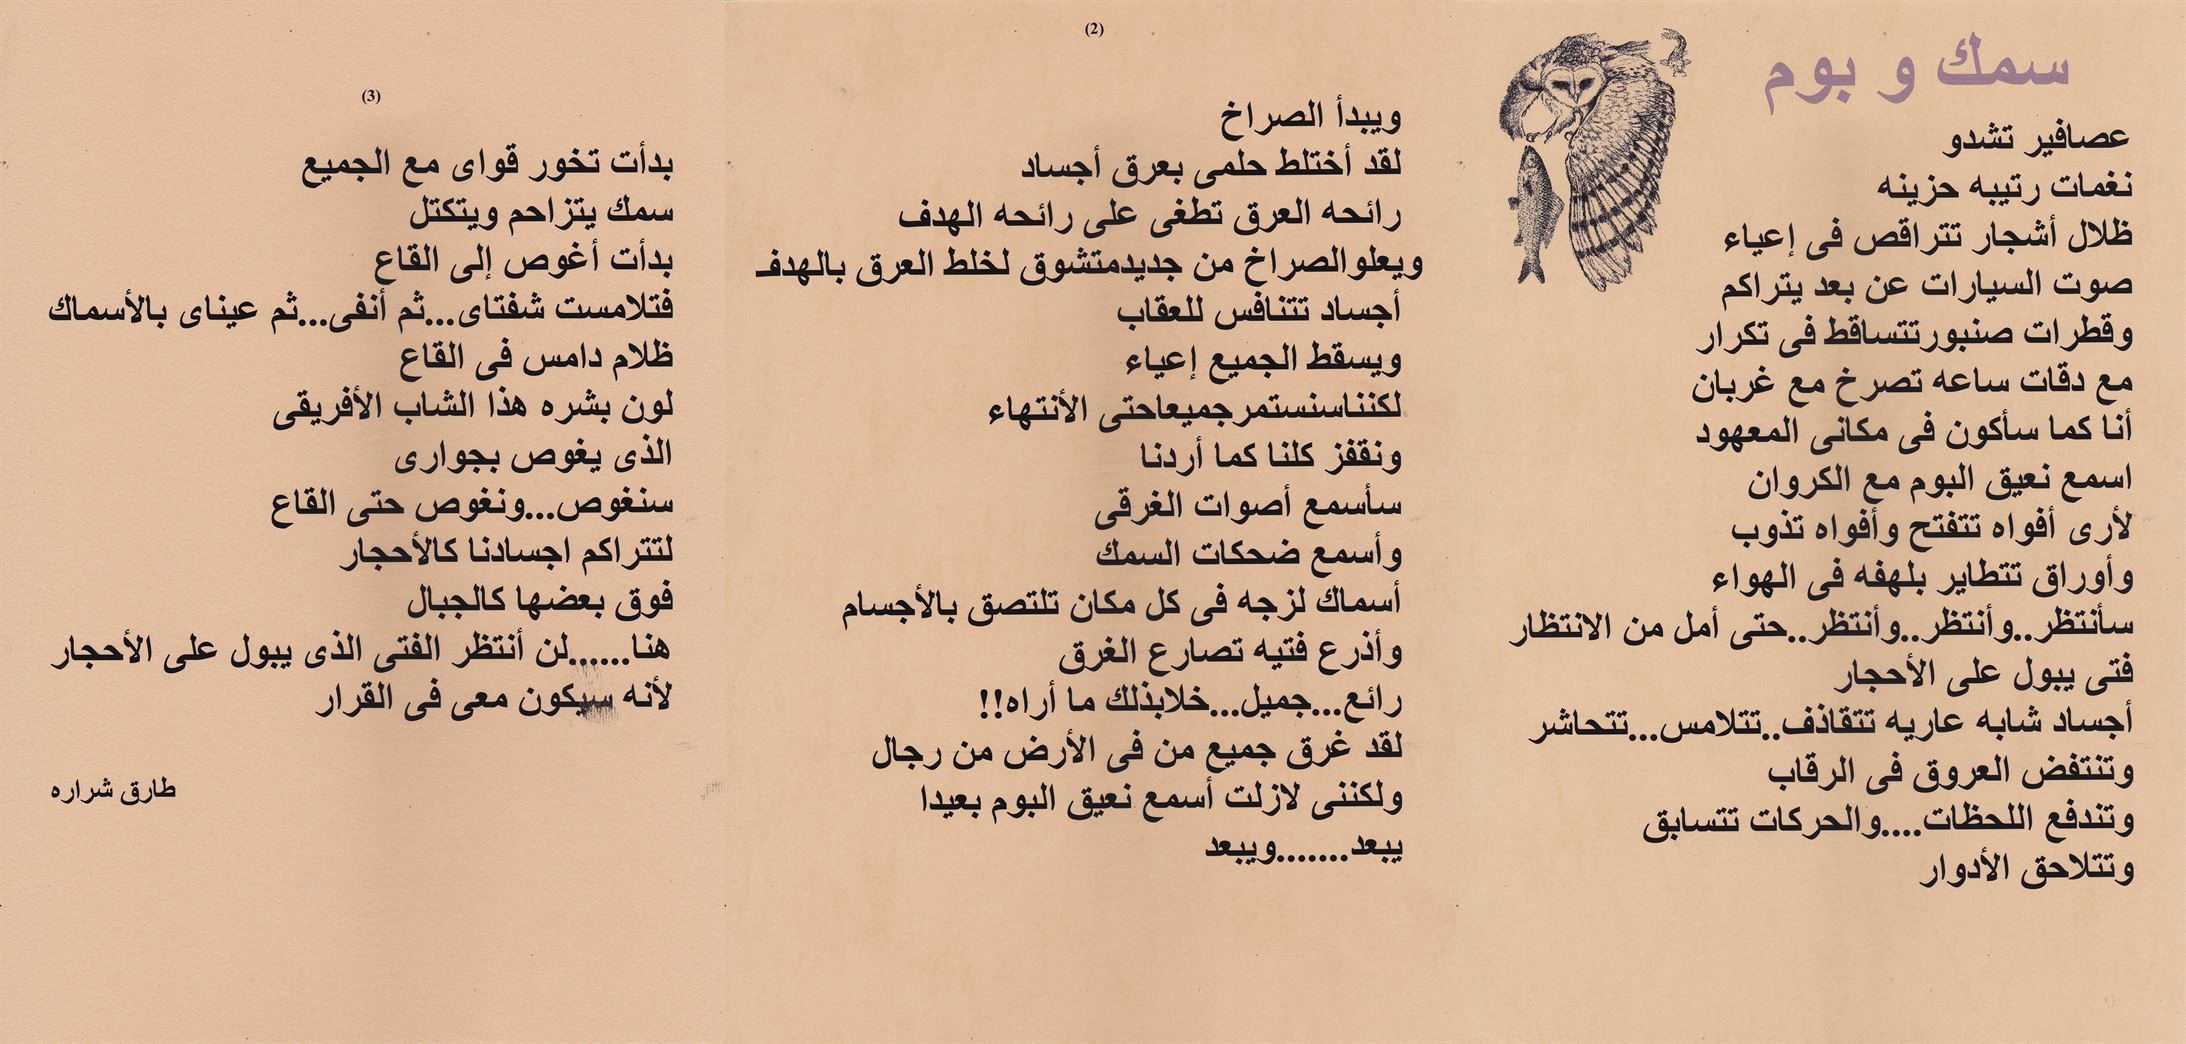 سمك و بوم
عصافير تشدو
نغمات رتيبه حزينه
ظلال أشجار تتراقص فى إعياء
صوت السيارات عن بعد يتراكم
وقطرات صنبورتتساقط فى تكرار
مع دقات ساعه تصرخ مع غربان
أنا كما سأكون فى مكانى المعهود
اسمع نعيق البوم مع الكروان
لأرى أفواه تتفتح وأفواه تذوب
وأوراق تتطاير بلهفه فى الهواء
سأنتظر..وأنتظر..وأنتظر..حتى أمل من الانتظار
فتى يبول على الأحجار
أجساد شابه عاريه تتقاذف..تتلامس...تتحاشر
وتنتفض العروق فى الرقاب
وتندفع اللحظات....والحركات تتسابق
وتتلاحق الأدوار
(2)
ويبدأ الصراخ
لقد أختلط حلمى بعرق أجساد
رائحه العرق تطغى على رائحه الهدف
ويعلوالصراخ من جديدمتشوق لخلط العرق بالهدف
أجساد تتنافس للعقاب
ويسقط الجميع إعياء
لكنناسنستمرجميعاحتى الأنتهاء
ونقفز كلنا كما أردنا
سأسمع أصوات الغرقى
وأسمع ضحكات السمك
أسماك لزجه فى كل مكان تلتصق بالأجسام
وأذرع فتيه تصارع الغرق
رائع...جميل...خلابذلك ما أراه!!
لقد غرق جميع من فى الأرض من رجال
ولكننى لازلت أسمع نعيق البوم بعيدا
يبعد.......ويبعد
(3)
بدأت تخور قواى مع الجميع
سمك يتزاحم ويتكتل
بدأت أغوص إلى القاع
فتلامست شفتاى...ثم أنفى...ثم عيناى بالأسماك
ظلام دامس فى القاع
لون بشره هذا الشاب الأفريقى
الذى يغوص بجوارى
سنغوص...ونغوص حتى القاع
لتتراكم اجسادنا كالأحجار
فوق بعضها كالجبال
هنا......لن أنتظر الفتى الذى يبول على الأحجار
لأنه سيكون معى فى القرار
طارق شراره